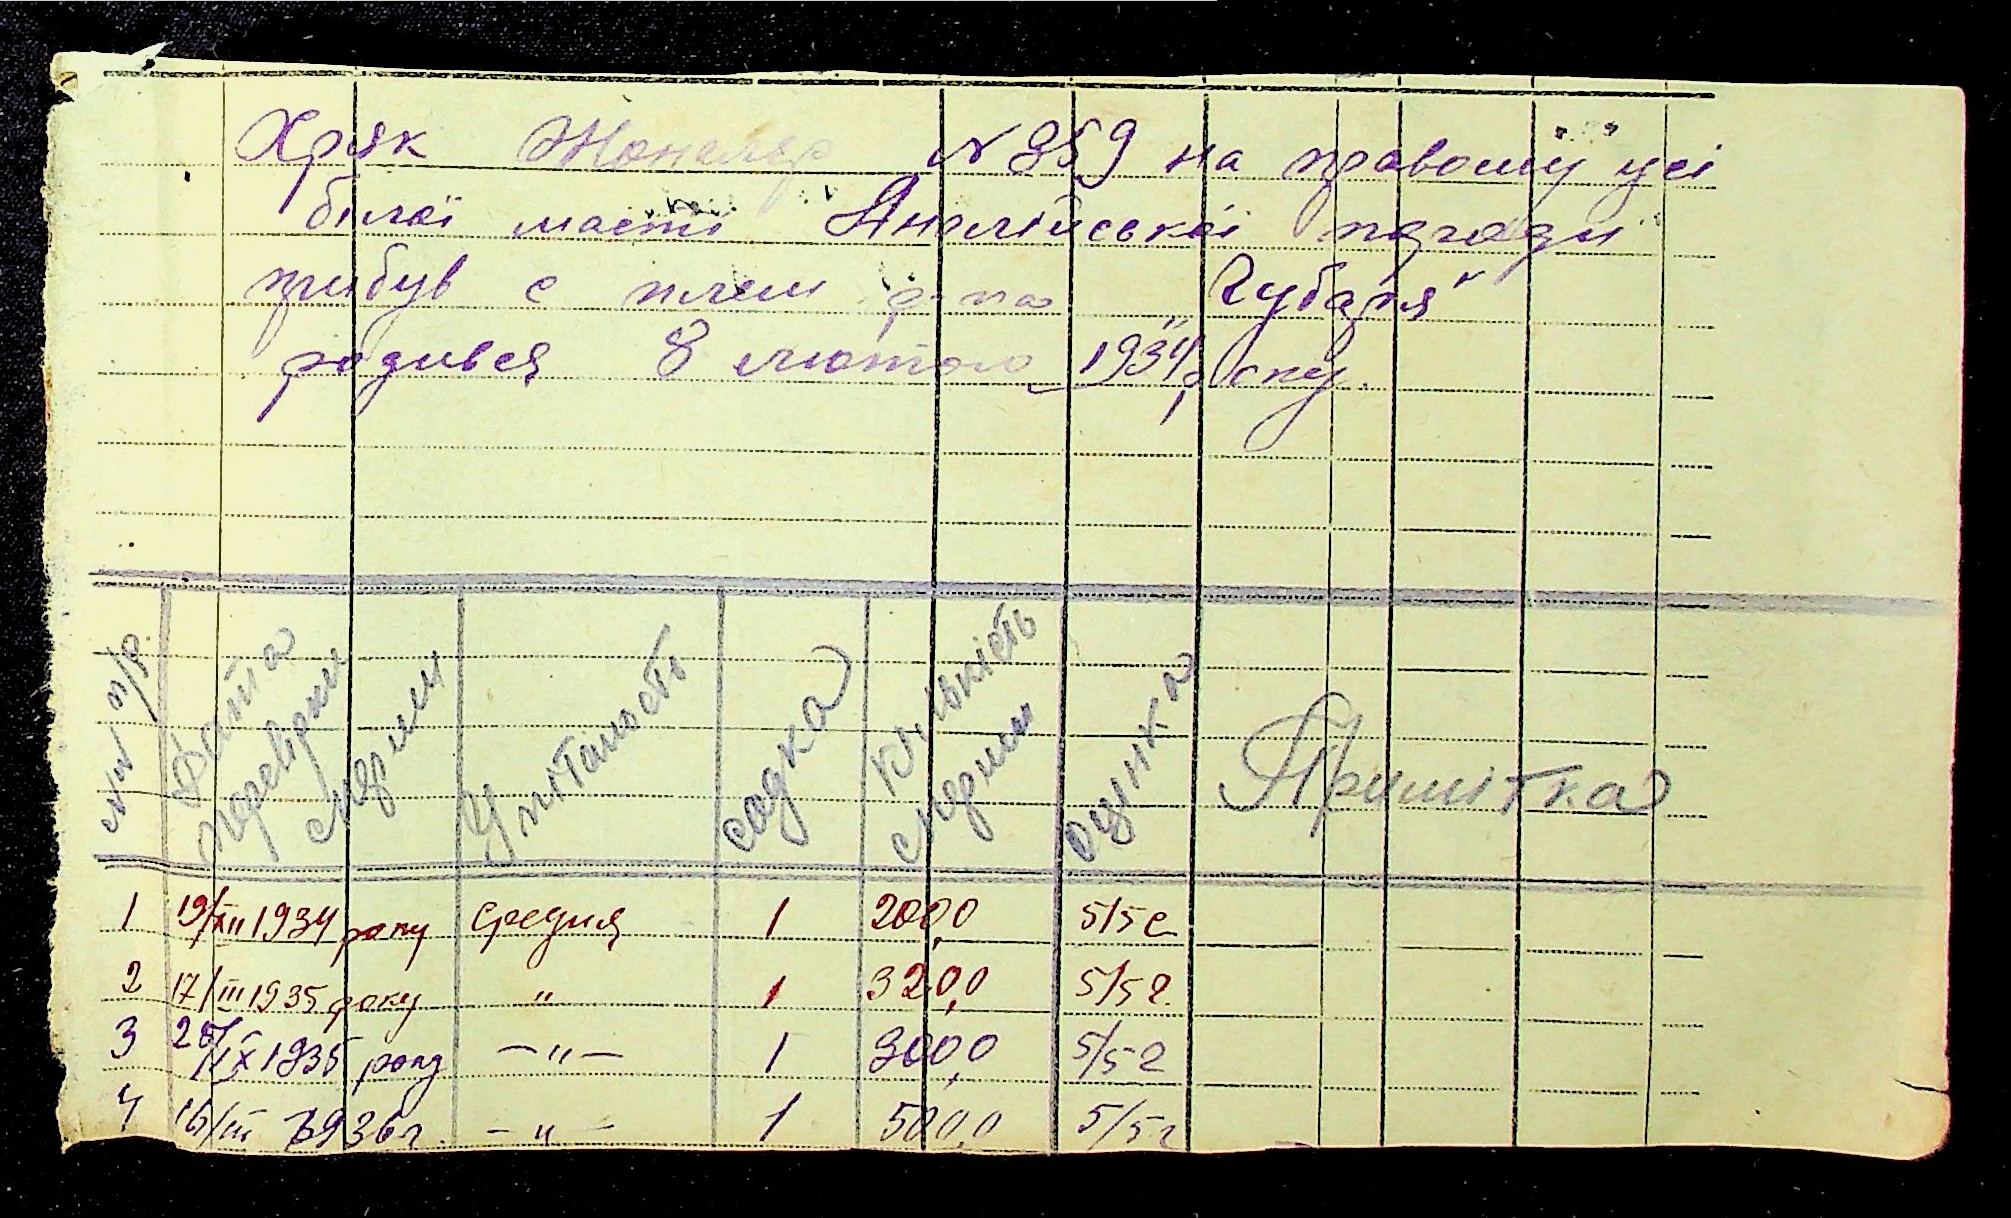 Хряк Жонглер № 859 на правому усі
білої масті Англійської породи
прибув с плем. "Губаря"
родився 8 лютого 1934 року.
№№ п/р.
Дата
перевірки
сперми
Упітаность
садка
Кількість
сперми
оцінка
Примітка
1 19/XII 1934 року средня 1 200,0 5/5 г
2 17/III 1935 року " 1 320,0 5/5 г.
3 IX 1935 року —"— 1 300,0 5/5 г
4 16/III 1936 г. —"— 1 500,0 5/5 г